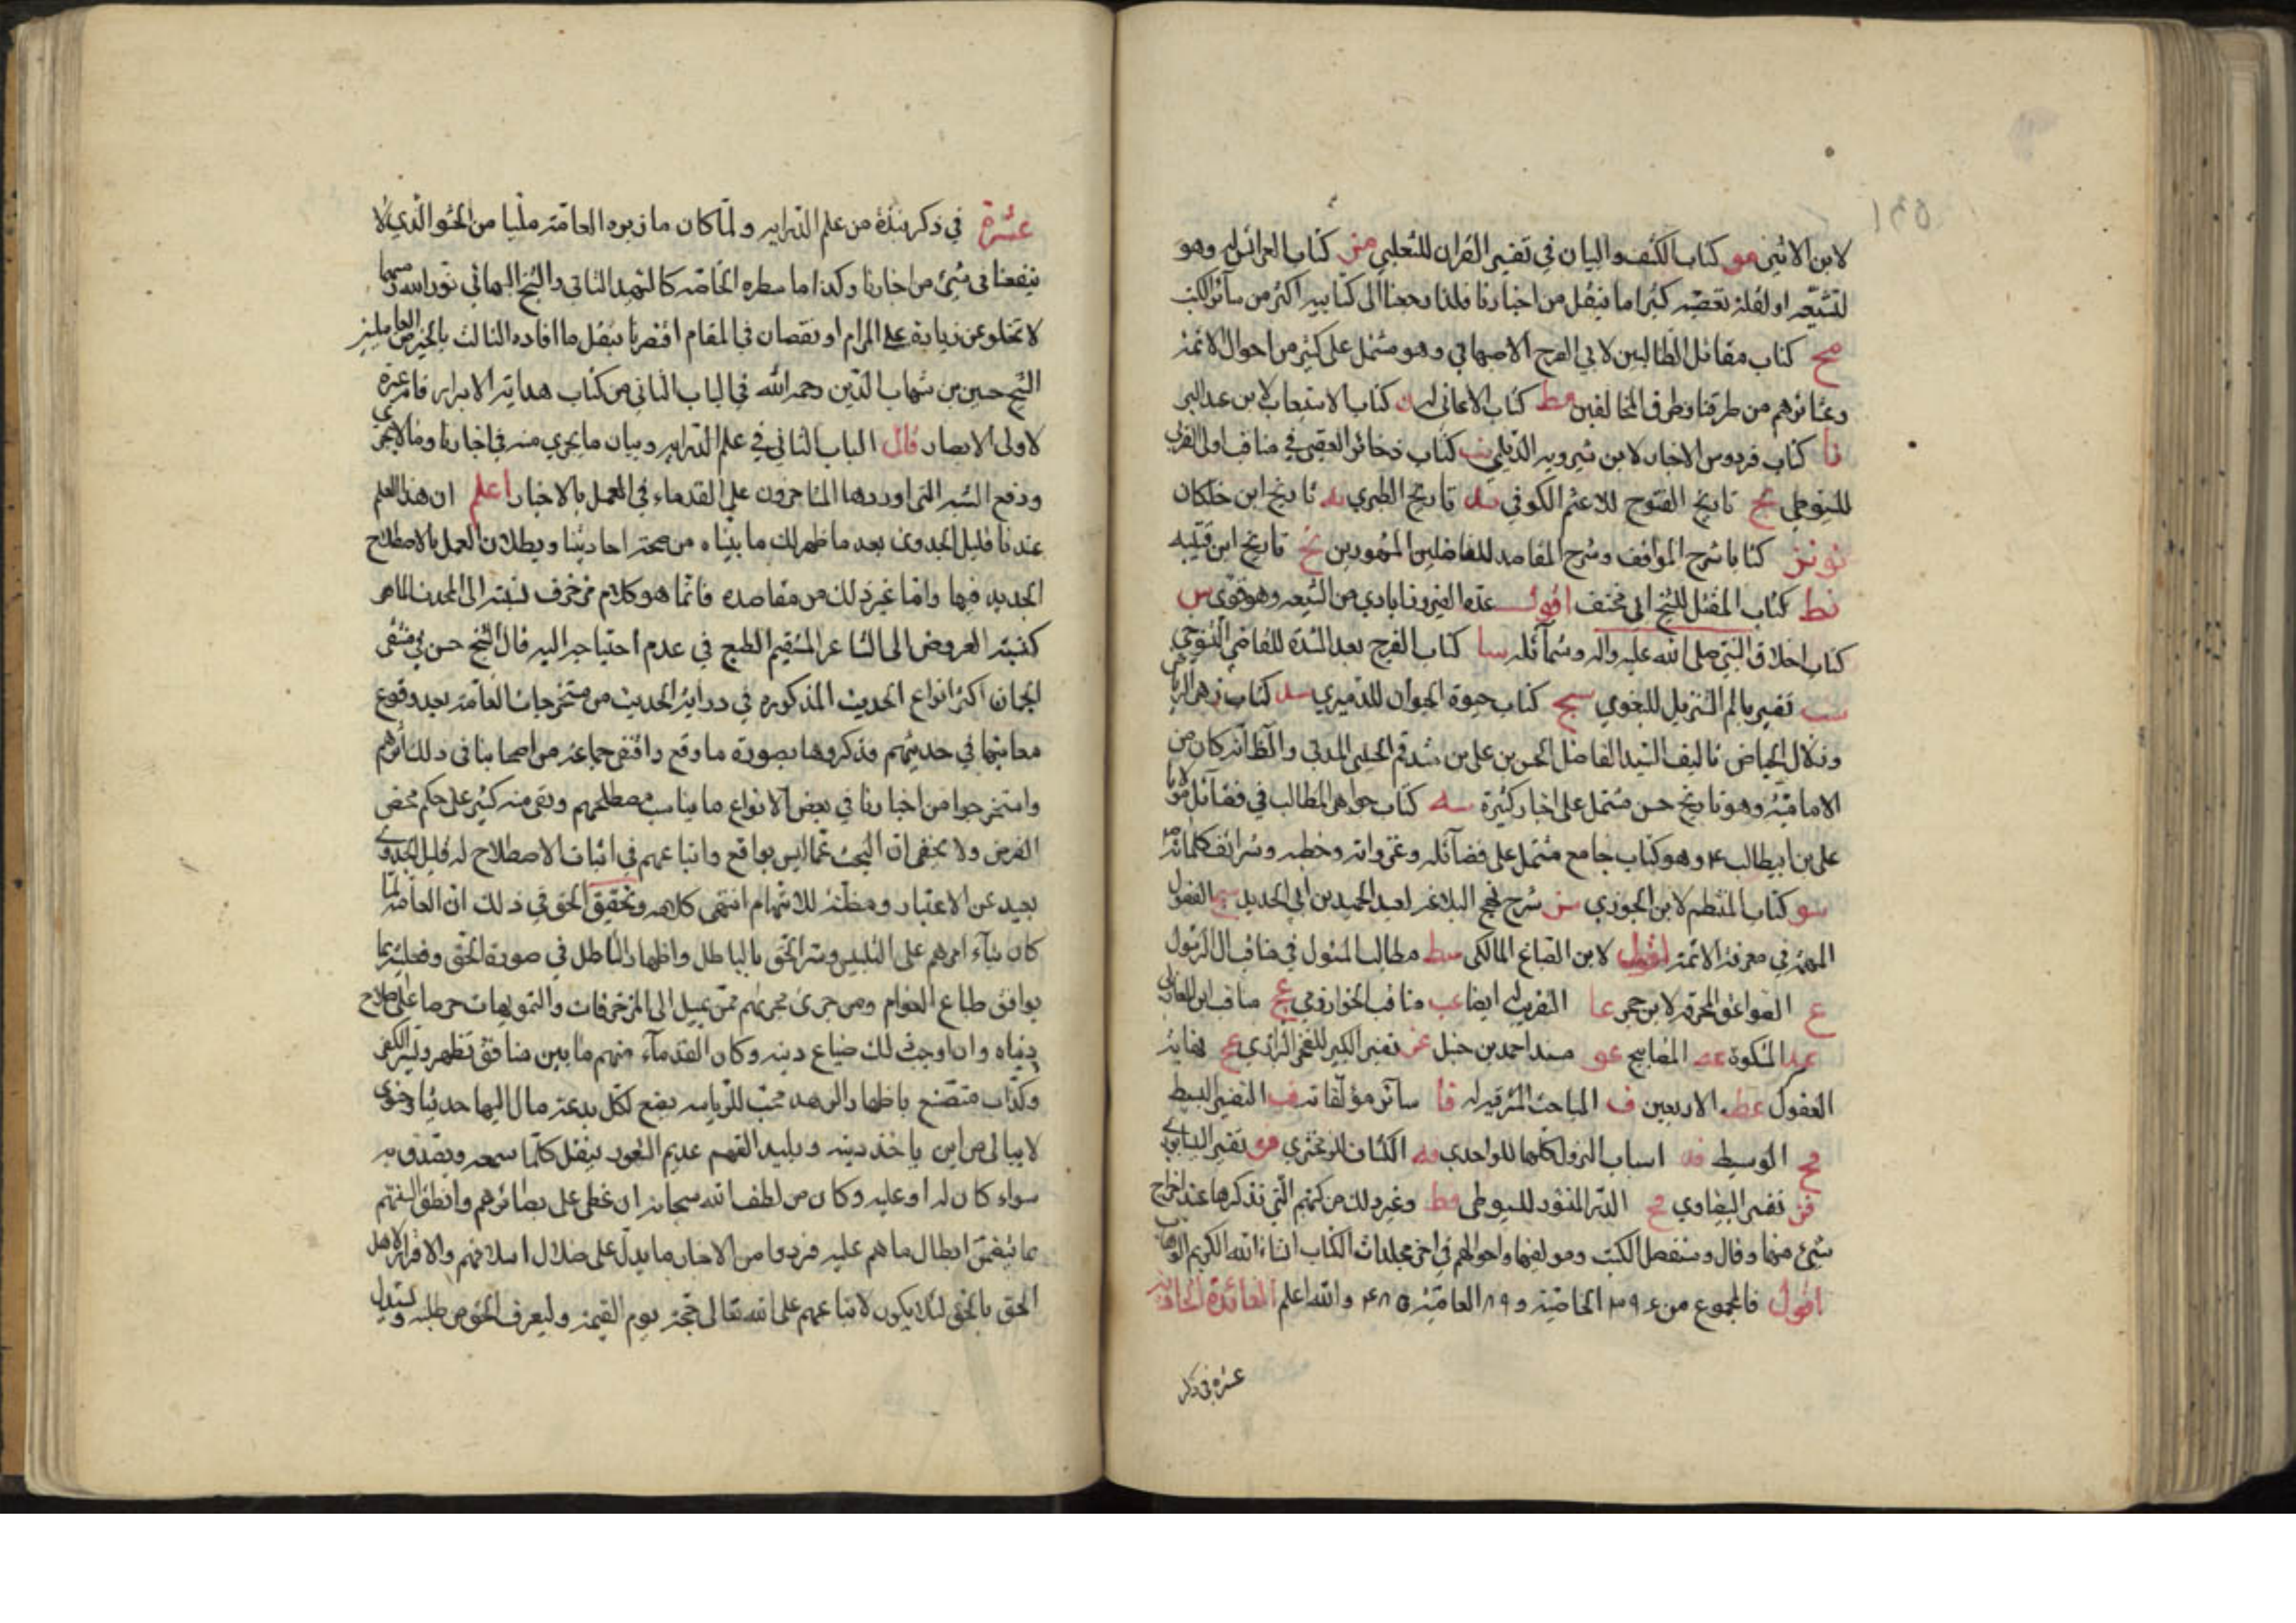 لابن الاثير مو كتاب الكشف والبيان في تفسير القران للثعلبي مز كتاب العرائس له وهو
لتشيّعه او لقلة تعصبه كثيرا ما ينقل من اخبارنا فلذا رجعنا الى كتابيه اكثر من سائر الكتب
مح كتاب مقاتل الطالبيين لابي الفرج الاصبهاني وهو مشتمل على كثير من احوال الائمة
وعشائرهم من طرقنا وطرق المخالفين مط كتاب الاغاني له ن كتاب الاستيعاب لابن عبد البر
نا كتاب فردوس الاخبار لابن شيرويه الديلمي نب كتاب ذخائر العقبى في مناقب اولي القربى
للسيوطي نج تاريخ الفتوح للاعثم الكوفي ند تاريخ الطبري نه تاريخ ابن خلكان
نو نز كتابا شرح المواقف وشرح المقاصد للفاضلين المشهورين نح تاريخ ابن قتيبه
نط كتاب المقتل للشيخ ابي مخنف اقول عده الفيروزابادي من الشيعه وهو قوي س
كتاب اخلاق النبي صلى الله عليه واله وشمائله سا كتاب الفرج بعد الشدة للقاضي التنوخي
سب تفسير معالم التنزيل للبغوي سج كتاب حيوة الحيوان للدميري سد كتاب زهر الرياض
وزلال الحياض تاليف السيد الفاضل الحسن بن علي بن شدقم الحسيني المدني والظاهر انه كان من
الاماميّة وهو تاريخ حسن مشتمل على اخبار كثيرة سه كتاب جواهر المطالب في فضائل مولانا
علي بن ابيطالب ع وهو كتاب جامع مشتمل على فضائله وغزواته وخطبه وشرائف كلماته
سو كتاب المنتظم لابن الجوزي سز شرح نهج البلاغه لعبد الحميد بن ابي الحديد سح الفصول
المهمّة في معرفة الائمة اقول لابن الصباغ المالكي سط مطالب السئول في مناقب ال الرسول
ع الصواعق المحرقه لابن حجر عا التقريب له ايضا عب مناقب الخوارزمي عج مناقب ابن المغازلي
عد المشكوة عه المصابيح عو مسند احمد بن حنبل عز تفسير الكبير للفخر الرازي عح نهاية
العقول عط الاربعين ف المباحث المشرقيه له فا سائر مؤلفاته فب التفسير البسيط
فج الوسيط فد اسباب النزول كلها للواحدي فه الكشاف للزمخشري فو تفسير النيسابوري
فز تفسير البيضاوي فح الدر المنثور للسيوطي فط وغير ذلك من كتبهم التي نذكرها عند اخراج
شيئ منها وقال وسنفصل الكتب ومولفيها واحوالهم في اخر مجلدات الكتاب انشاء الله الكريم الوهاب
اقول فالمجموع من ٣٩٤ الخاصيّة و ٨٩ العاميّة ٤٨٥ والله اعلم الفائدة الحادية
عشرة في ذكر
عشرة في ذكر نبذة من علم الدرايه ولمّا كان ما زبره العامّة مليّا من الحشو الذي لا
ينفعنا في شيئ من اخبارنا وكذا ما سطره الخاصه كالشهيد الثاني والشيخ البهائي نور الله رمسهما
لا تخلو عن زيادة على المرام او نقصان في المقام اقتصرنا بنقل ما افاده الثالث بالخير من العاملين
الشيخ حسين بن شهاب الدين رحمه الله في الباب الثاني من كتاب هداية الابرار فانه عبرة
لاولي الابصار قال الباب الثاني في علم الدرايه وبيان ما يجري منه في اخبارنا وما لا يجري
ودفع الشبه التي اوردها المتاخرون على القدماء في العمل بالاخبار اعلم ان هذا العلم
عندنا قليل الجدوى بعد ما ظهر لك ما بيّناه من صحة احاديثنا وبطلان العمل بالاصطلاح
الجديد فيها وامّا غير ذلك من مقاصده فانّما هو كلام مزخرف نسبته الى المحدث الماهر
كنسبة العروض الى الشاعر المستقيم الطبع في عدم احتياجه اليه قال الشيخ حسن في منتقى
الجمان اكثر انواع الحديث المذكوره في دراية الحديث من مستخرجات العامّة بعد وقوع
معانيها في حديثهم فذكروها بصورة ما وقع واقتفى جماعة من اصحابنا في ذلك اثرهم
واستخرجوا من اخبارنا في بعض الانواع ما يناسب مصطلحهم وبقي منه كثير على حكم محض
الفرض ولا يخفى ان البحث عمّا ليس بواقع واتباعهم في اثبات الاصطلاح له قليل الجدوى
بعيد عن الاعتبار ومظنّة للاتهام انتهى كلامه وتحقيق الحق في ذلك انّ العامّة لمّا
كان بناء امرهم على التلبيس وستر الحق بالباطل واظهار الباطل في صورة الحق وفعليّتها
يوافق طباع العوام ومن جرى مجراهم ممّن يميل الى المزخرفات والتمويهات حرصا على صلاح
دنياه وان اوجب ذلك ضياع دينه وكان القدماء منهم ما بين منافق تظهر ويسرّ الكفر
وكذّاب متصنّع باظهار الزهد محب للرياسه يضع لكل بدعة مال اليها حديثا واخرى
لا يبالي من اين ياخذ دينه وبليد الفهم عديم الشعور ينقل كلما سمعه ويصدق به
سواء كان له او عليه وكان من لطف الله سبحانه ان غطى على بصائرهم وانطق السنتهم
بما يتضمّن ابطال ما هم عليه فرووا من الاخبار ما يدلّ على ضلال اسلافهم والاقرار لاهل
الحق بالحق لئلا يكون لاتباعهم على الله تعالى حجّة يوم القيمة وليعرف الحق من طلبه ويستدل